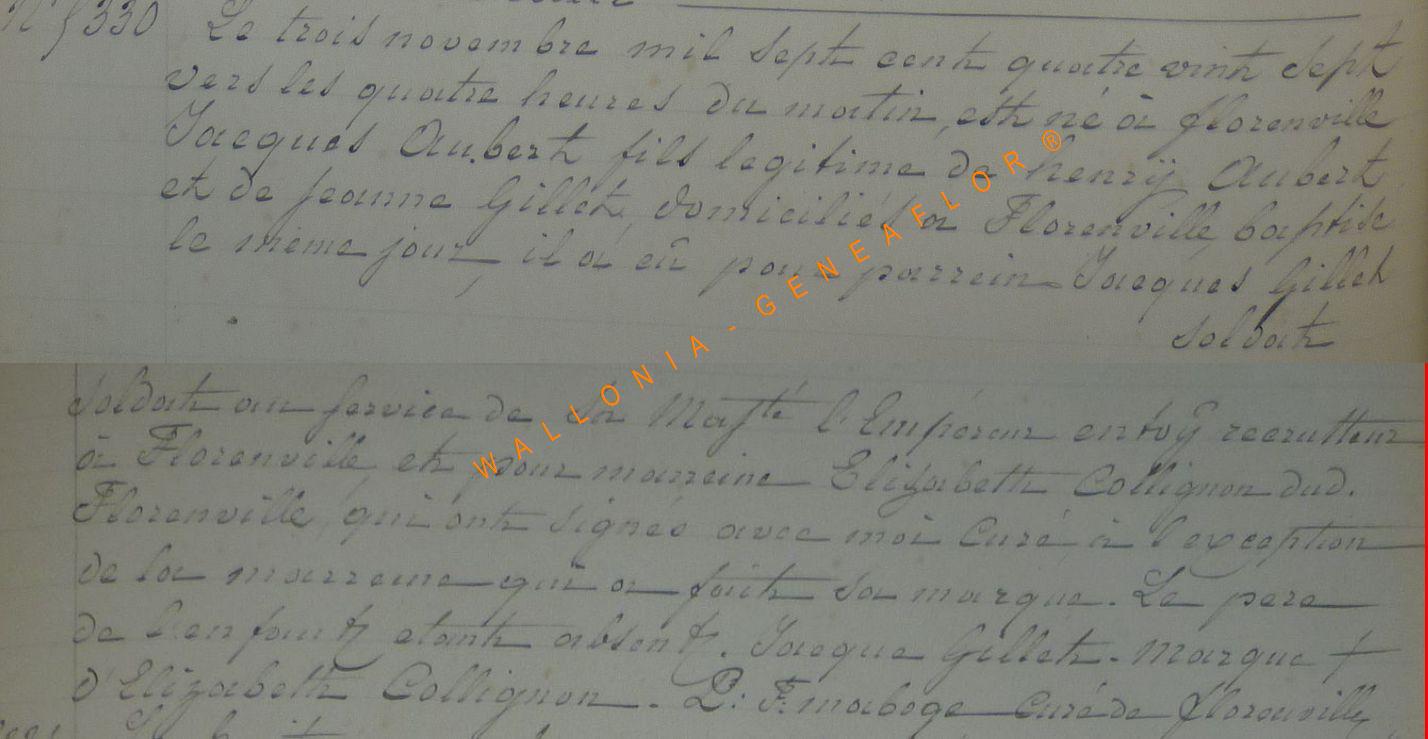 N° 330 Le trois novembre mil sept cent quatre vint sept
vers les quatre heures du matin, est né à florenville
Jacques Aubert fils legitime de henrÿ Aubert
et de Jeanne Gillet, domiciliés a Florenville, baptise
le même jour, il a eû pour parrein Jacques Gillet
soldat
soldat au service de Sa Majté l'Empereur envoÿ recrutteur
à Florenville, et pour marreine Elizabeth Collignon dud.
Florenville, qui ont signés avec moi Curé, à l'exception
de la marreine qui a fait sa marque. Le pere
de l'enfant etant absent. Jacque Gillet. Marque +
d'Elizabeth Collignon. P: F: maboge curé de florenville
WALLONIA - GENEAFLOR ®